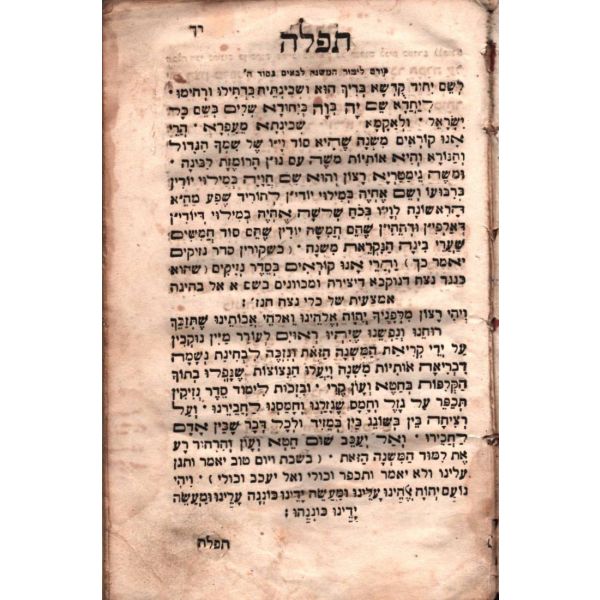 יד
תפלה
קודם לימוד המשנה לבאים בסוד ה'
לשם יחוד קֻדְשָׁא בְּרִיךְ הוּא וּשְׁכִינְתֵּיהּ בִּדְחִילוּ וּרְחִימוּ •
לְיַחֲדָא שֵׁם יָהּ בְּוָה בְּיִחוּדָא שְׁלִים בְּשֵׁם כָּל
יִשְׂרָאֵל • וּלְאָקְמָא שְׁכִינְתָּא מֵעַפְרָא • הֲרֵי
אָנוּ קוֹרְאִים מִשְׁנָה שֶׁהִיא סוֹד וָי"ו שֶׁל שִׁמְךָ הַגָּדוֹל
וְהַנּוֹרָא וְהִיא אוֹתִיּוֹת מֹשֶׁה עִם נוּ"ן הָרוֹמֶזֶת לְבִינָה •
וּמֹשֶׁה גִּימַטְרִיָּא רָצוֹן וְהוּא שֵׁם הֲוָיָ"ה בְּמִלּוּי יוּדִי"ן
בְּרִבּוּעוֹ וְשֵׁם אֶהְיֶה בְּמִלּוּי יוּדִי"ן לְהוֹרִיד שֶׁפַע מֵה"א
הָרִאשׁוֹנָה לְוָי"ו בְּכֹחַ שְׁלֹשָׁה אֶהְיֶה בְּמִלּוּי דְּיוּדִי"ן
דְּאַלְפִי"ן וּדְהֵהִי"ן שֶׁהֵם חֲמִשָּׁה יוּדִין שֶׁהֵם סוֹד חֲמִשִּׁים
שַׁעֲרֵי בִינָה הַנִּקְרֵאת מִשְׁנָה • (כשקורין סדר נזיקים
יאמר כך) וַהֲרֵי אָנוּ קוֹרְאִים בְּסֵדֶר נְזִיקִים (שהוא
כנגד נצח דנוקבא דיצירה ומכוונים בשם א אל בחינת
אמצעית של כלי נצח הנז' :
וִיהִי רָצוֹן מִלְּפָנֶיךָ יְהֹוָה אֱלֹהֵינוּ וֵאלֹהֵי אֲבוֹתֵינוּ שֶׁתְּזַכֵּךְ
רוּחֵנוּ וְנַפְשֵׁנוּ שֶׁיִּהְיוּ רְאוּיִם לְעוֹרֵר מַיִין נוּקְבִין
עַל יְדֵי קְרִיאַת הַמִּשְׁנָה הַזֹּאת וְנִזְכֶּה לִבְחִינַת נְשָׁמָה
דִּבְרִיאָה אוֹתִיּוֹת מִשְׁנָה וְיַעֲלוּ הַנִּצוֹצוֹת שֶׁנָּפְלוּ בְּתוֹךְ
הַקְּלִפּוֹת בְּחֵטְא וְעָוֹן קֶרִי • וּבִזְכוּת לִימּוּד סֵדֶר נְזִיקִין
תְּכַפֵּר עַל גֶּזֶל וְחָמָס שֶׁגָּזַלְנוּ וְחָמַסְנוּ לַחֲבֵירֵנוּ • וְעַל
רְצִיחָה בֵּין בְּשׁוֹגֵג בֵּין בְּמֵזִיד וּלְכָל דָּבָר שֶׁבֵּין אָדָם
לַחֲבֵירוֹ • וְאַל יְעַכֵּב שׁוּם חֵטְא וְעָוֹן וְהִרְהוּר רַע
אֶת לִמּוּד הַמִּשְׁנָה הַזֹּאת • (בשבת ויום טוב יאמר ותגן
עלינו ולא יאמר ותכפר וכולי ואל יעכב וכולי) • וִיהִי
נוֹעַם יְהֹוָה אֱלֹהֵינוּ עָלֵינוּ וּמַעֲשֵׂה יָדֵינוּ כּוֹנְנָה עָלֵינוּ וּמַעֲשֵׂה
יָדֵינוּ כּוֹנְנֵהוּ :
תפלת